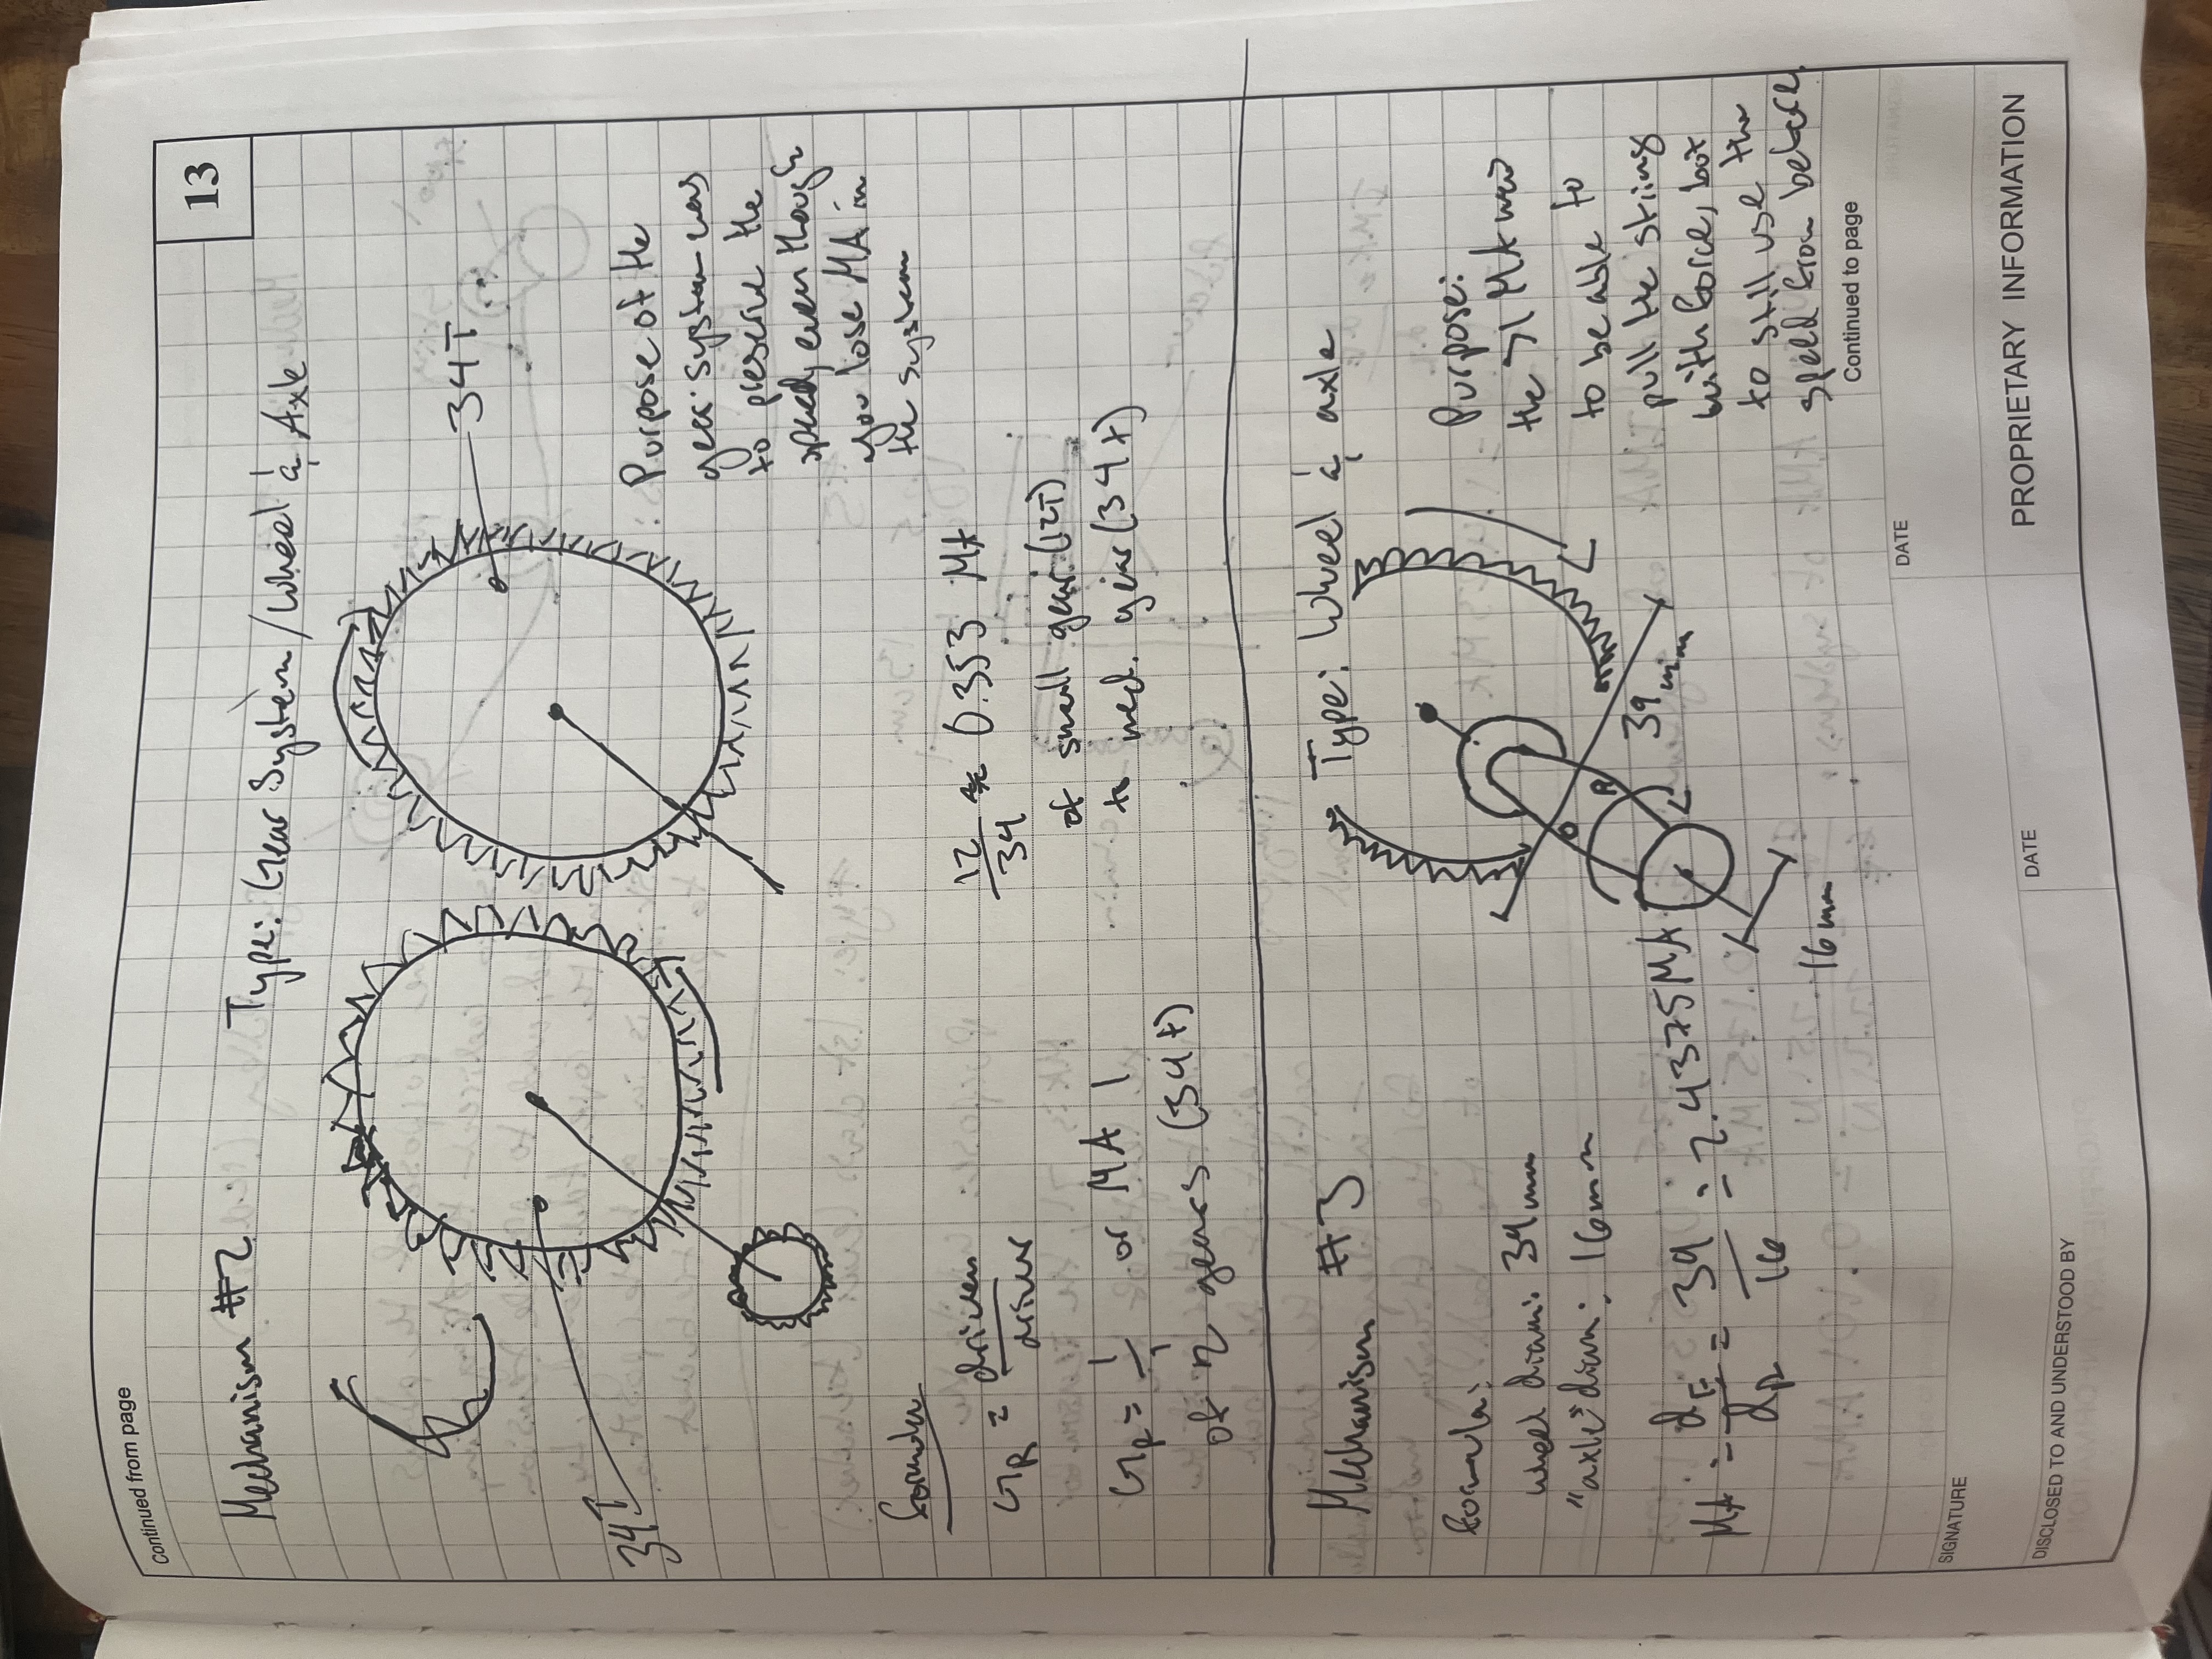 Continued from page
13
Mechanism #2
Type: Gear System/Wheel & Axle
34T
34T
Purpose of the
gear system was
to preserve the
speed, even though
you lose MA in
the system
formula
GR = driven
driver
12
34
≈ 0.353 MA
of small gear (12T)
to med. gear (34t)
GR = 1
1
or MA 1
of 2 gears (34t)
Mechanism #3
Type: Wheel & axle
formula:
wheel diam: 39mm
"axle" diam: 16mm
MA = dE
dR
= 39
16
= 2.4375 MA
R
39mm
16mm
Purpose:
the >1 MA was
to be able to
pull the string
with force, but
to still use the
speed from before.
Continued to page
SIGNATURE
DATE
DISCLOSED TO AND UNDERSTOOD BY
DATE
PROPRIETARY INFORMATION